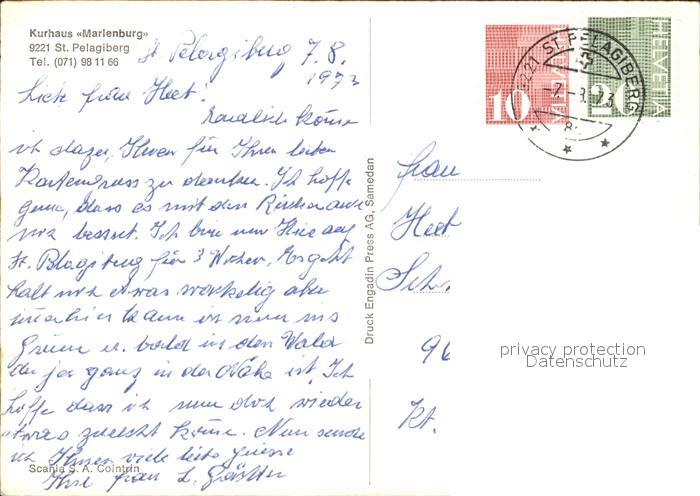 Kurhaus «Marienburg»
9221 St. Pelagiberg
Tel. (071) 98 11 66
St. Pelagiberg 7.8.
1973
Liebe Frau
Endlich komme
ich dazu, Ihnen für Ihren lieben
Kartengruss zu danken. Ich hoffe
gerne, dass es mit dem
bessert. Ich bin nun hier auf
St. Pelagiberg für 3 Wochen. Es geht
halt noch etwas wackelig aber
immerhin kann ich nun ins
Grüne u. bald in den Wald
der ja ganz in der Nähe ist. Ich
hoffe dass ich nun doch wieder
etwas zuecht komme. Nun sende
ich Ihnen viele liebe Grüsse
Ihre Frau L.
Scania S. A. Cointrin
Druck Engadin Press AG, Samedan
10 HELVETIA
20 HELVETIA
9221 ST. PELAGIBERG
-7.-8.73
Frau
Sch
96
Kt.
privacy protection
Datenschutz